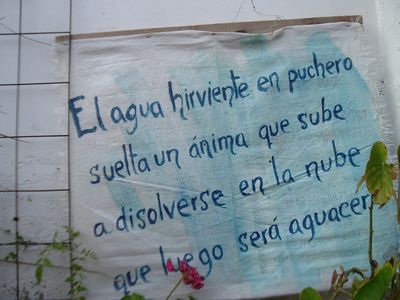 El agua hirviente en puchero
suelta un ánima que sube
a disolverse en la nube
que luego será aguacer